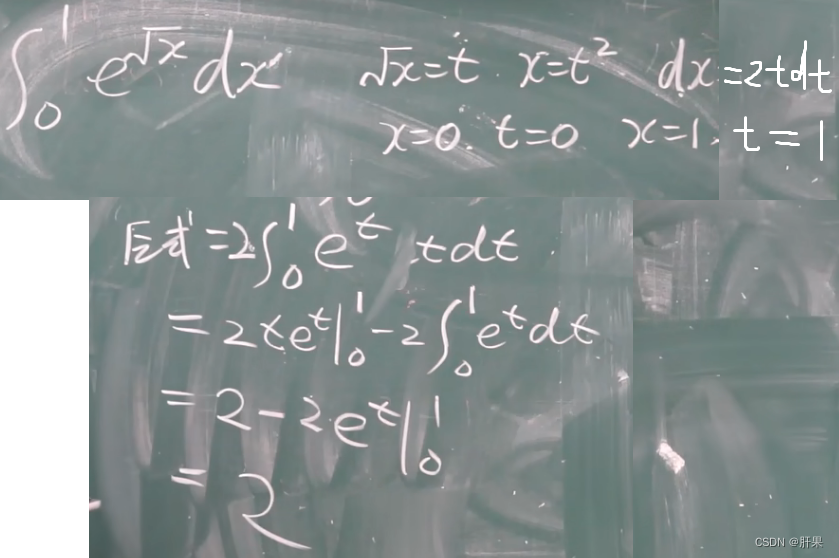 ∫₀¹ e^√x dx √x=t x=t² dx=2tdt
x=0. t=0 x=1. t=1
原式=2∫₀¹ e^t tdt
=2te^t|₀¹-2∫₀¹e^tdt
=2-2e^t|₀¹
=2
CSDN @肝果